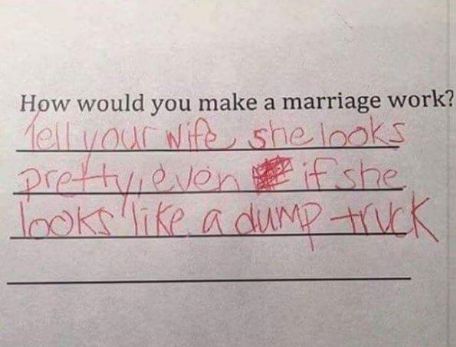 How would you make a marriage work?
Tell your wife she looks
pretty, even if she
looks like a dump truck